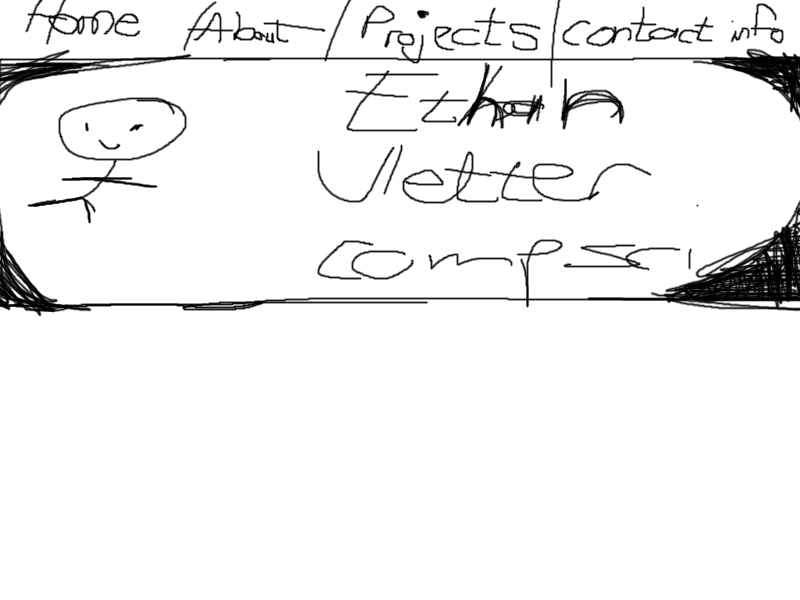 Home / About / Projects | contact info
Ethan
Vletter
compsci